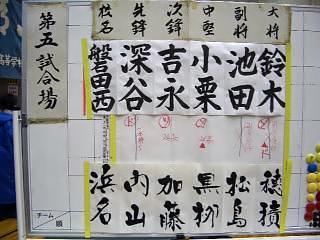 第五試合場
校名 先鋒 次鋒 中堅 副将 大将
磐田西 深谷 吉永 小栗 池田 鈴木
浜名 内山 加藤 黒柳 松島 穂積
チーム 順
高等学校